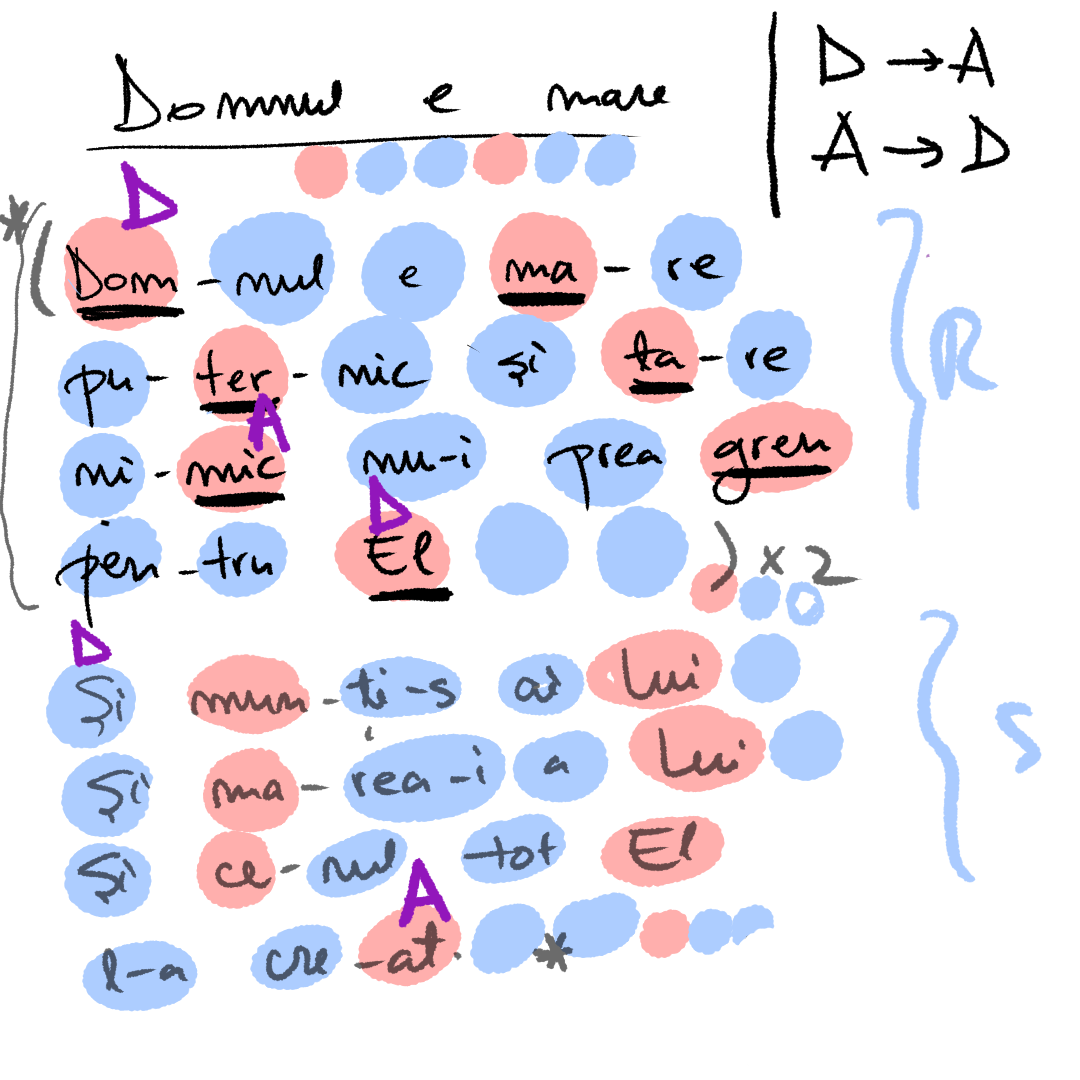 Domnul e mare
D → A
A → D
D
* ( Dom - nul e ma - re
R
pu - ter - nic și ta - re
A
ni - mic nu-i prea greu
D
pen - tru El ) x 2
D
Și mun - ți-s ai Lui
S
Și ma - rea-i a Lui
Și ce - rul tot El
A
l-a cre - at. *